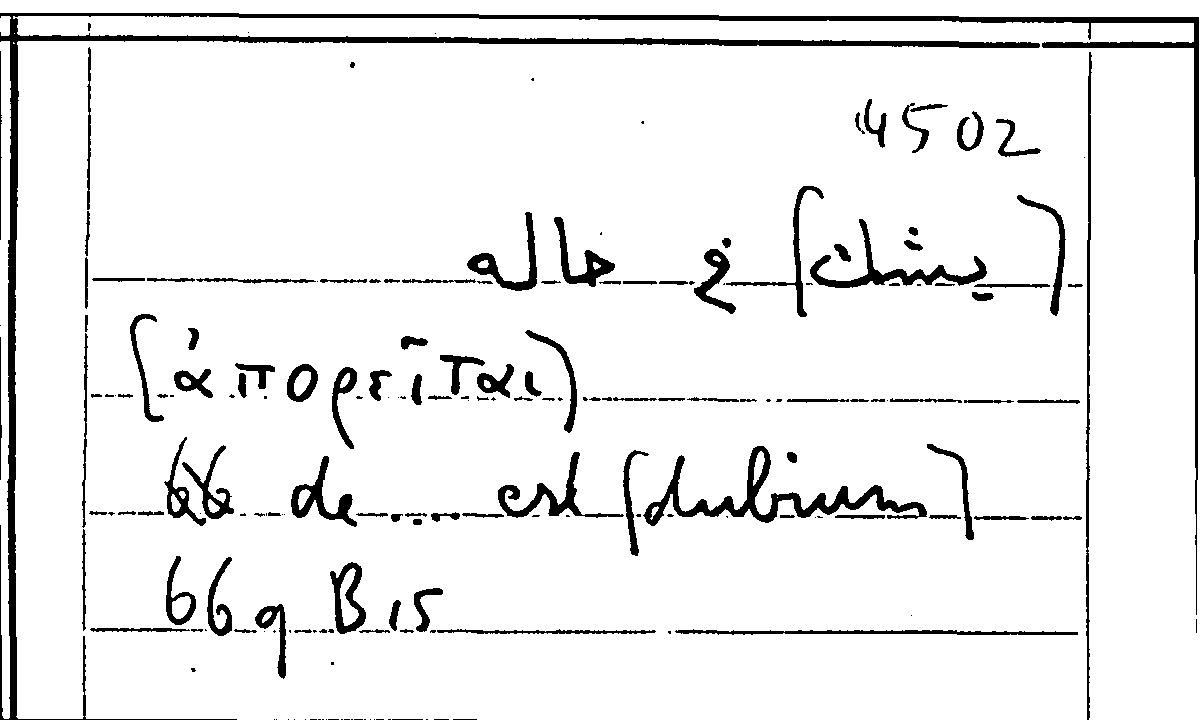 4502
[يشك] في حاله
[ἀπορεῖται]
de .... est [dubium]
669 B 15